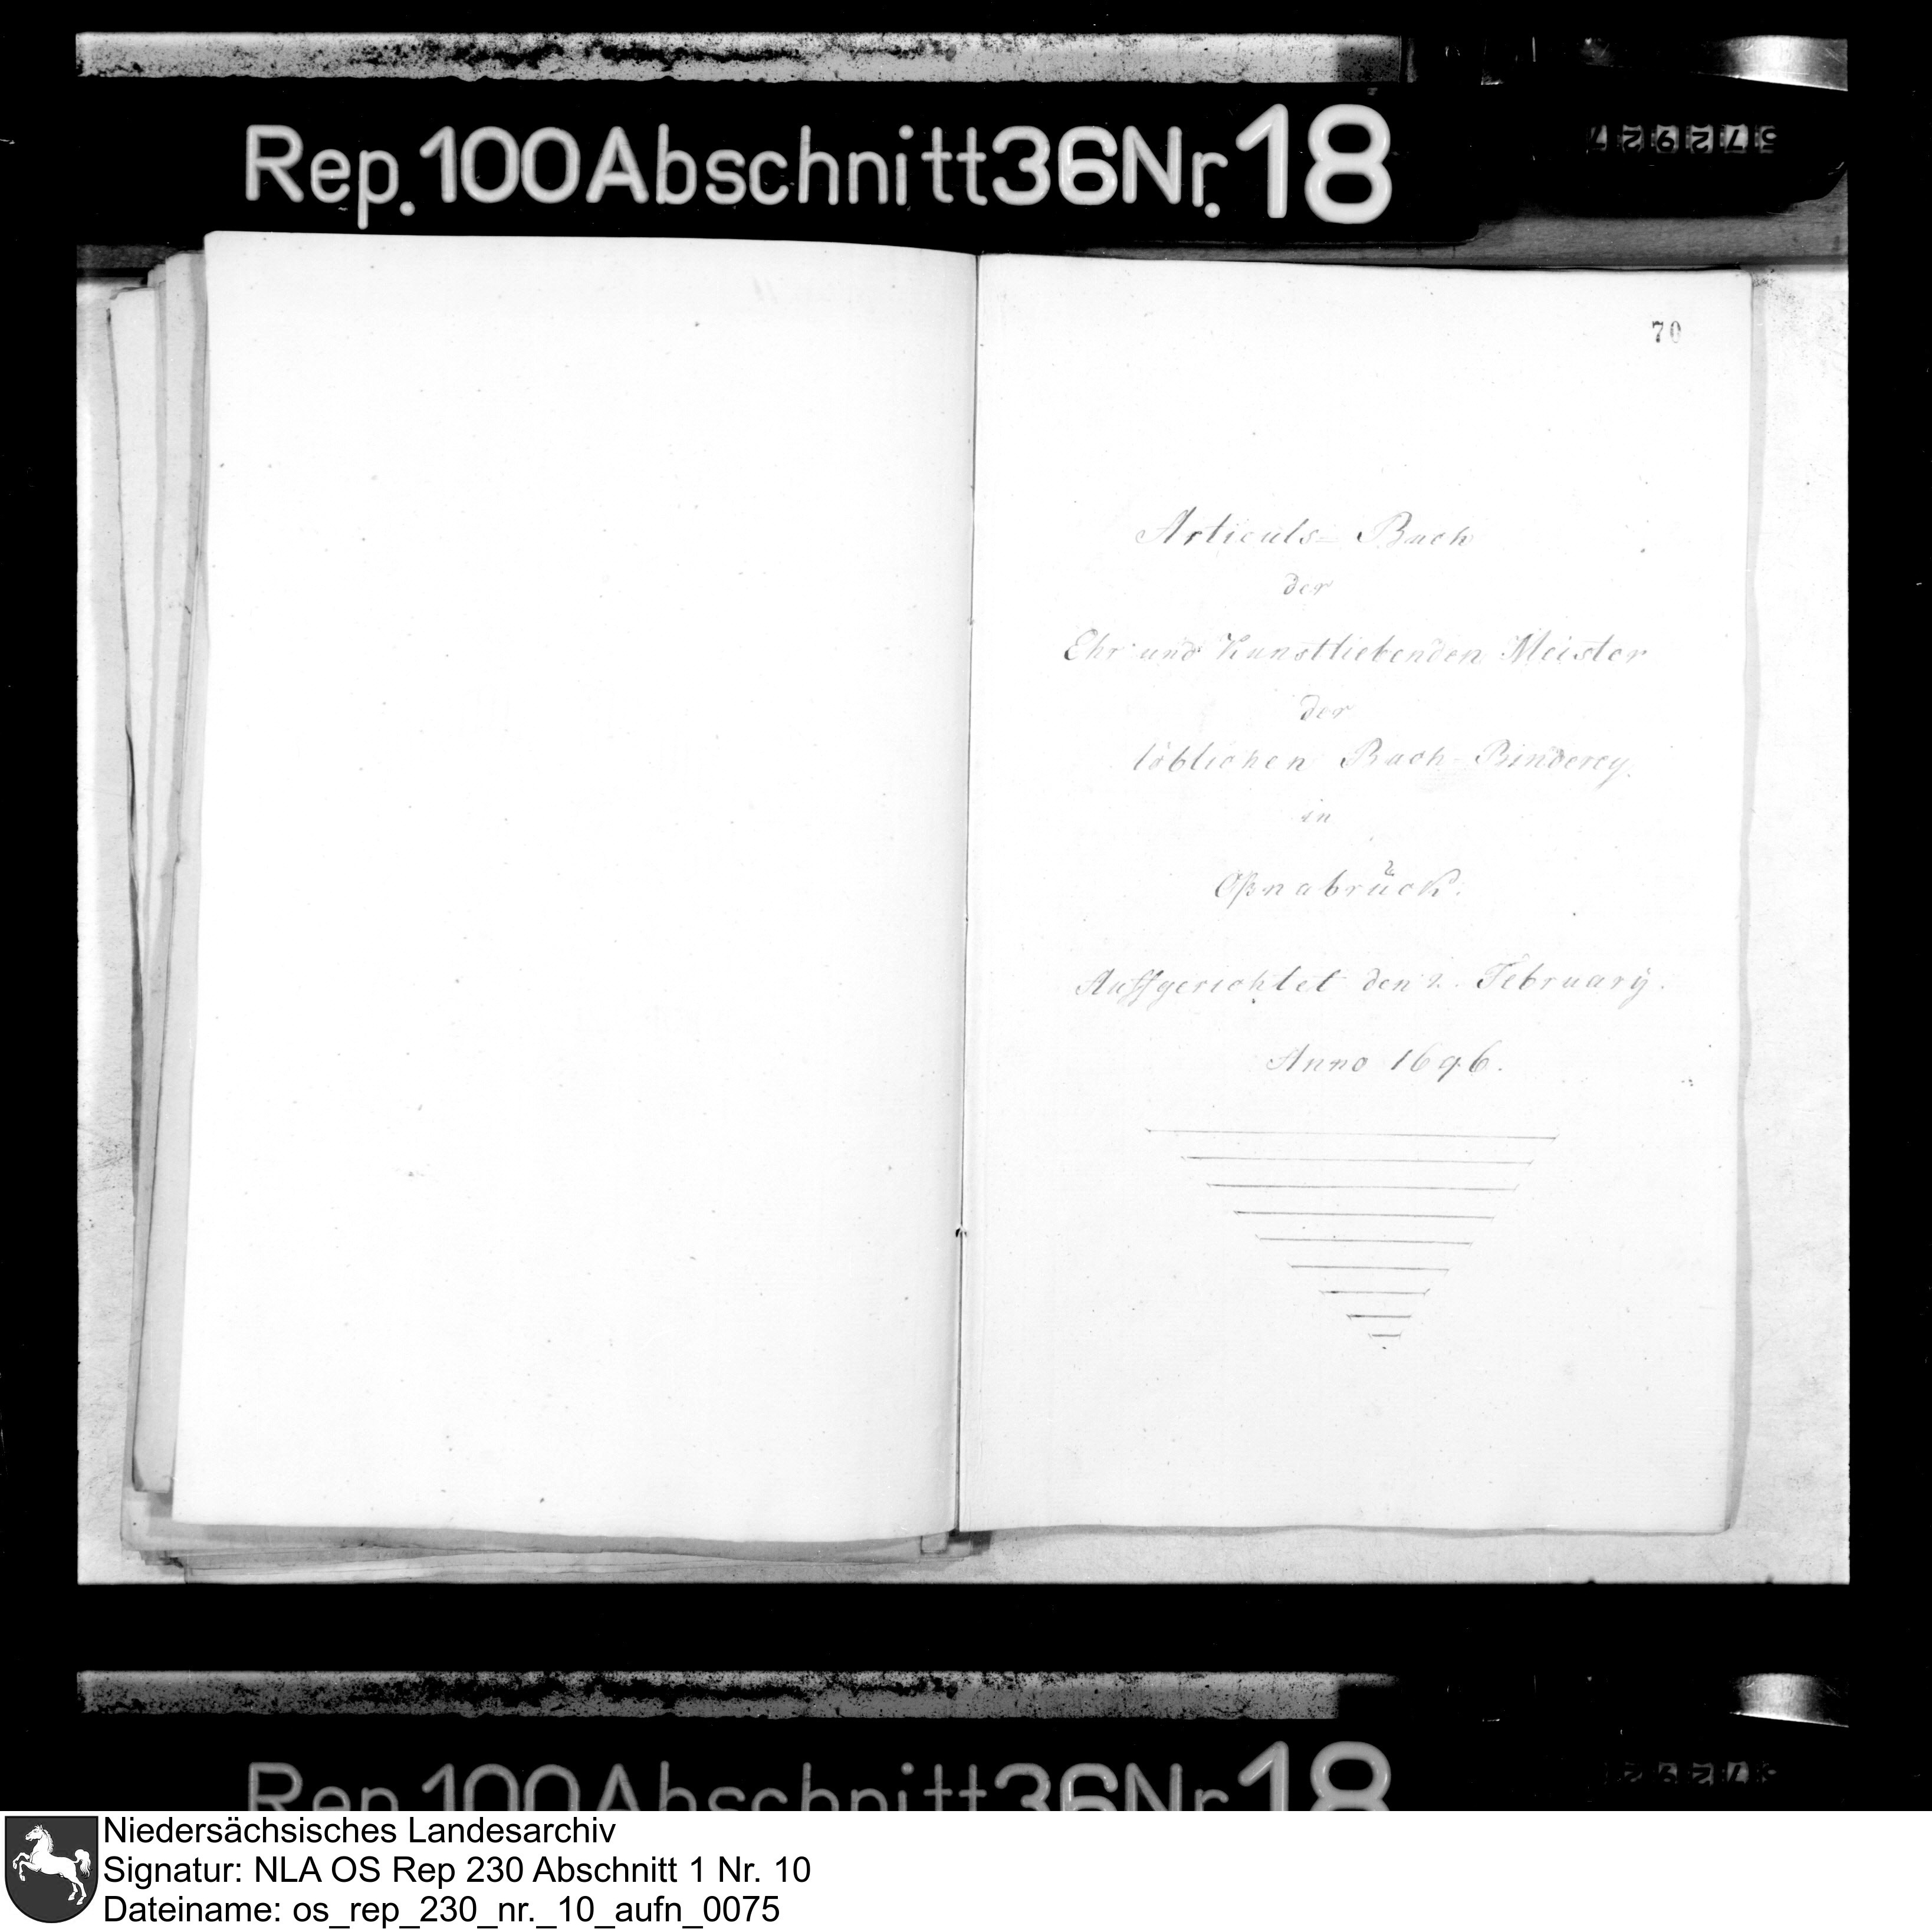 Rep. 100 Abschnitt 36 Nr. 18
70
Articuls= Buch
der
Ehr und Kunstliebenden Meister
der
löblichen Buch-Binderey.
in
Oßnabrück.
Auffgerichtet den 2. February.
Anno 1696.
Rep. 100 Abschnitt 36 Nr. 18
Niedersächsisches Landesarchiv
Signatur: NLA OS Rep 230 Abschnitt 1 Nr. 10
Dateiname: os_rep_230_nr._10_aufn_0075